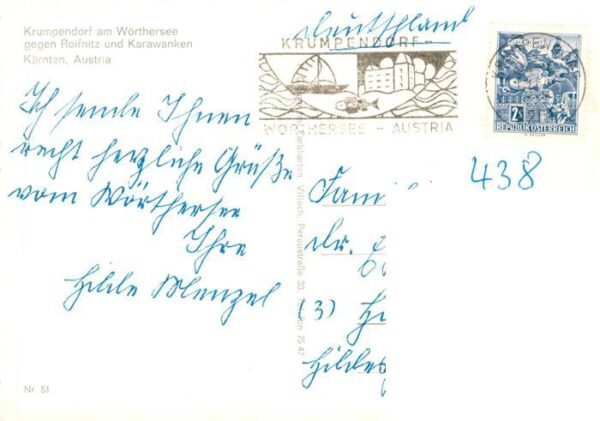 Krumpendorf am Wörthersee
gegen Reifnitz und Karawanken
Kärnten, Austria
Deutschland
KRUMPENDORF
WÖRTHERSEE - AUSTRIA
2
REPUBLIK ÖSTERREICH
438
Ich sende Ihnen
recht herzliche Grüße
vom Wörthersee
Ihre
Hilde Menzel
Dr.
(3)
Villach, Peraustraße 33,
Nr. 51